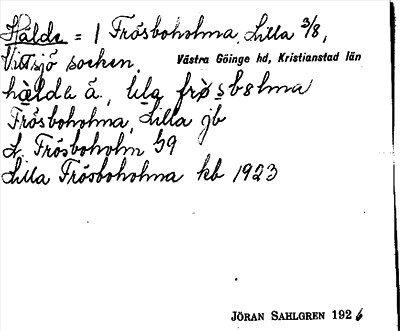 Hälde = 1 Frösboholma, Lilla 3/8,
Vittsjö socken, Västra Göinge hd, Kristianstad län
hälda å, lila frøsb8lma
Frösboholma, Lilla jb
L. Frösboholm 59
Lilla Frösboholma kb 1923
JÖRAN SAHLGREN 1926